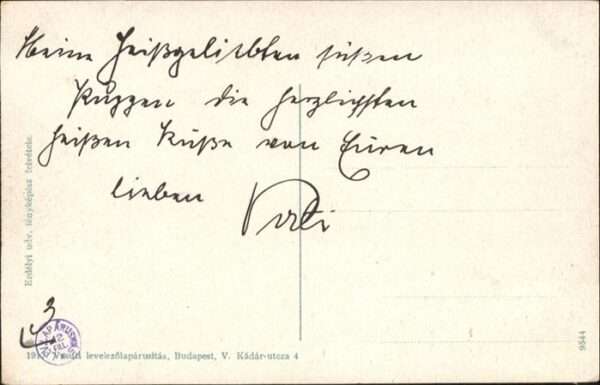 Meine heißgeliebten süßen
Puppen die herzlichsten
heißen Küße von Euren
lieben Vati
Erdélyi udv. fényképész felvétele.
levelezőlapárusitás, Budapest, V. Kádár-utcza 4
9544